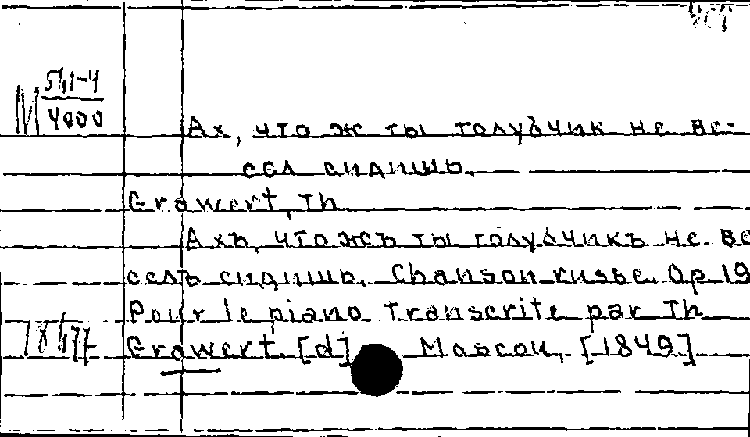 М 511-4
4000
Ах, что ж ты голубчик не ве-
сел сидишь.
Grawert, Th
Ахъ, что жъ ты голубчикъ не ве
селъ сидишь. Chanson russe. Op 19
Pour le piano transcrite par Th
Grawert. [d] Moscou, [1849]